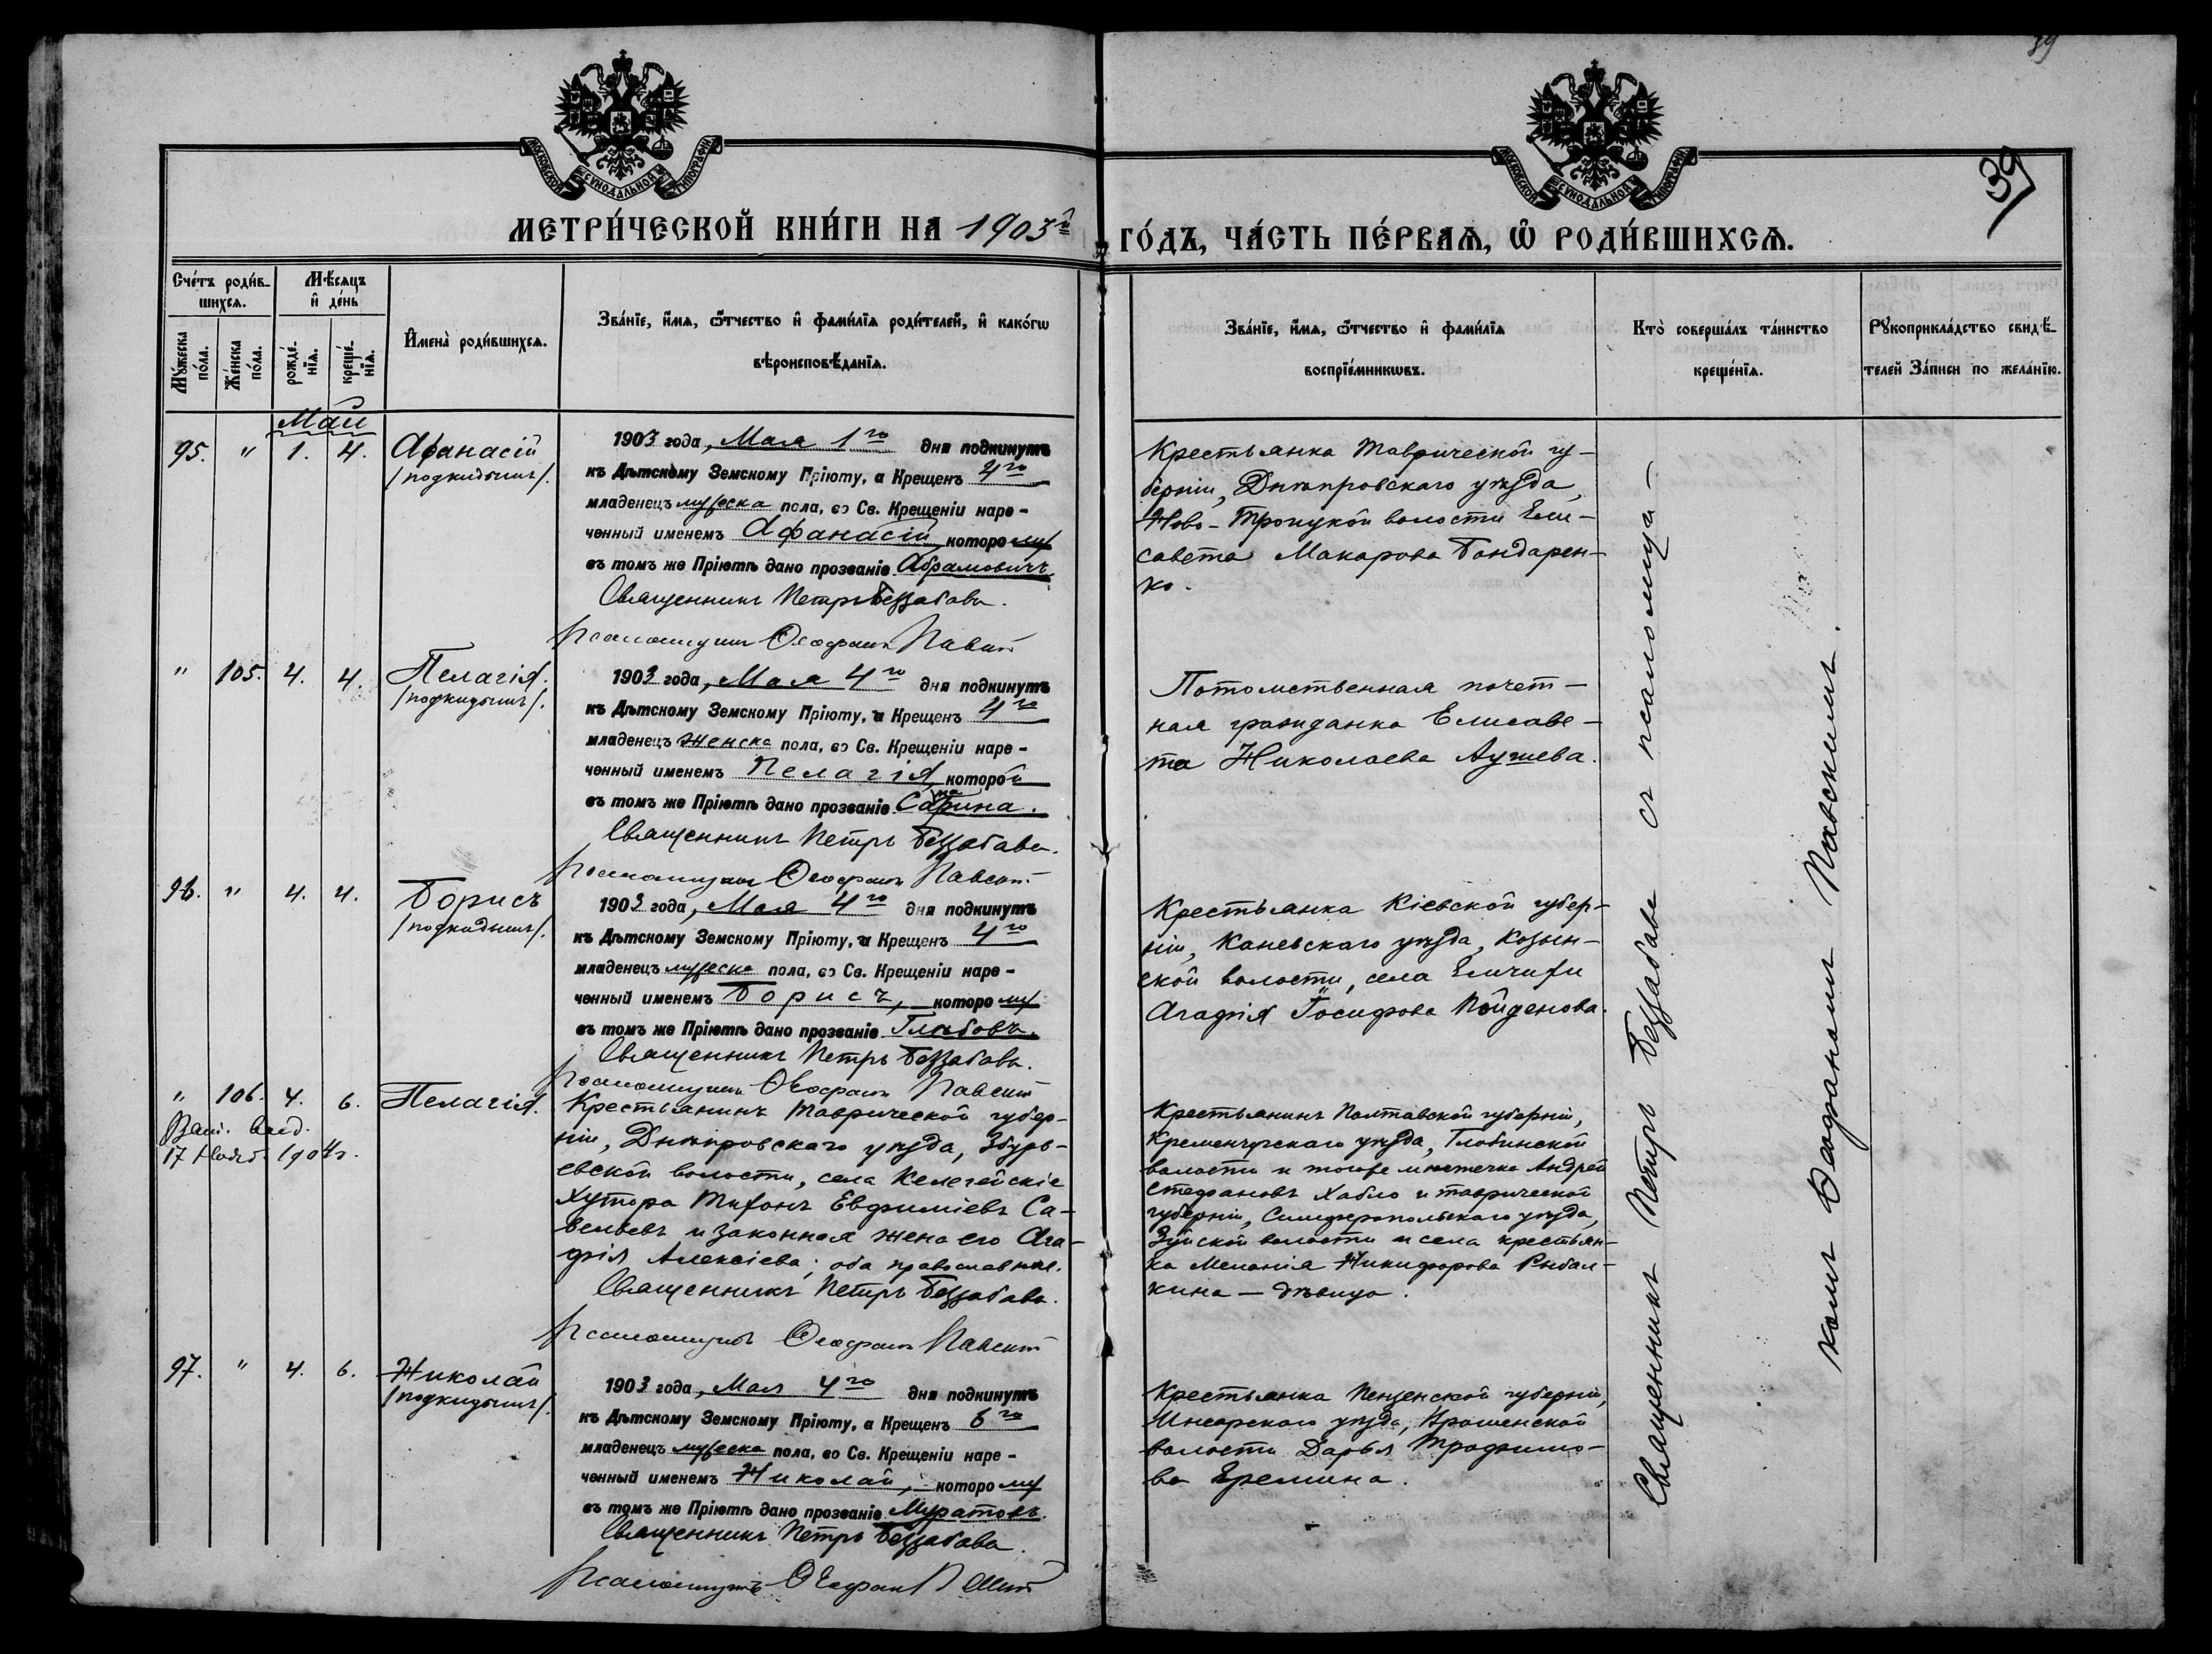 39
МОСКОВСКОЙ СУНОДАЛЬНОЙ ТИПОГРАФІИ
МОСКОВСКОЙ СУНОДАЛЬНОЙ ТИПОГРАФІИ
39
МЕТРИ́ЧЕСКОЙ КНИ́ГИ НА 1903й
ГО́ДЪ, ЧА́СТЬ ПЕ́РВАѦ, Ѡ҆ РОДИ́ВШИХСѦ.
Сче́тъ роди́в-
шихсѧ.
Мꙋ́жеска по́ла.
Же́нска по́ла.
Мѣ́сѧцъ
и҆ де́нь
рожде́-
нїѧ.
креще́-
нїѧ.
И҆мена̀ роди́вшихсѧ.
Зва́нїе, и҆́мѧ, ѻ҆́тчество и҆ фами́лїѧ роди́телей, и҆ како́гѡ
вѣроисповѣ́данїѧ.
Зва́нїе, и҆́мѧ, ѻ҆́тчество и҆ фами́лїѧ
воспрїе́мникѡвъ.
Кто̀ соверша́лъ та́инство
креще́нїѧ.
Рꙋкоприкла́дство свидѣ́-
телей За́писи по жела́нїю.
Май
95. " 1. 4. Афанасій
/подкидышъ/.
1903 года, Мая 1го дня подкинутъ
къ Дѣтскому Земскому Пріюту, а Крещенъ 4го
младенецъ мужеска пола, во Св. Крещеніи наре-
ченный именемъ Афанасій, которому
въ томъ же Пріютѣ дано прозваніе Абрамовичъ
Священникъ Петръ Беззабава.
Псаломщикъ Ѳеофанъ Павскій
Крестьянка Таврической гу-
берніи, Днѣпровскаго уѣзда,
Ново-Троицкой волости Ели-
савета Макарова Бондарен-
ко.
" 105. 4. 4. Пелагія.
/подкидышъ/.
1903 года, Мая 4го дня подкинутъ
къ Дѣтскому Земскому Пріюту, а Крещенъ 4го
младенецъ женска пола, во Св. Крещеніи наре-
ченный именемъ Пелагія, которой
въ томъ же Пріютѣ дано прозваніе
Священникъ Петръ Беззабава.
Псаломщикъ Ѳеофанъ Павскій
Потомственная почет-
ная гражданка Елисаве-
та Николаева
96. " 4. 4. Борисъ
/подкидышъ/.
1903 года, Мая 4го дня подкинутъ
къ Дѣтскому Земскому Пріюту, а Крещенъ 4го
младенецъ мужеска пола, во Св. Крещеніи наре-
ченный именемъ Борисъ, которому
въ томъ же Пріютѣ дано прозваніе Глѣбовъ.
Священникъ Петръ Беззабава.
Псаломщикъ Ѳеофанъ Павскій
Крестьянка Кіевской губер-
ніи, Каневскаго уѣзда, Козин-
ской волости, села
Агафія Іосифова
" 106. 4. 6. Пелагія.
17 1904 г.
Крестьянинъ Таврической губер-
ніи, Днѣпровскаго уѣзда, Збурь-
евской волости, села Келегейскіе
Хутора Тихонъ Евфиміевъ Са-
вельевъ и законная жена его Ага-
фія Алексіева; оба православные.
Священникъ Петръ Беззабава.
Псаломщикъ Ѳеофанъ Павскій
Крестьянинъ Полтавской губерніи,
Кременчугскаго уѣзда, Глобинской
волости и тогоже мѣстечка Андрей
Стефановъ Хабло и таврической
губерніи, Симферопольскаго уѣзда,
Зуйской волости и села крестьян-
ка Меланія Никифорова Рыбал-
кина – дѣвица.
97. " 4. 6. Николай
/подкидышъ/.
1903 года, Мая 4го дня подкинутъ
къ Дѣтскому Земскому Пріюту, а Крещенъ 6го
младенецъ мужеска пола, во Св. Крещеніи наре-
ченный именемъ Николай, которому
въ томъ же Пріютѣ дано прозваніе Муратовъ.
Священникъ Петръ Беззабава.
Псаломщикъ Ѳеофанъ Павскій
Крестьянка Пензенской губерніи,
Инсарскаго уѣзда,
волости Дарья Трофимо-
ва Еремина.
Священникъ Петръ Беззабава съ псаломщи-
комъ Ѳеофаномъ Павскимъ.